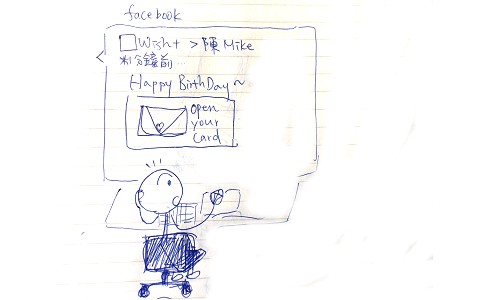 facebook
Wish+ > 陳Mike
利分鐘前...
Happy BirthDay~
open
your
card